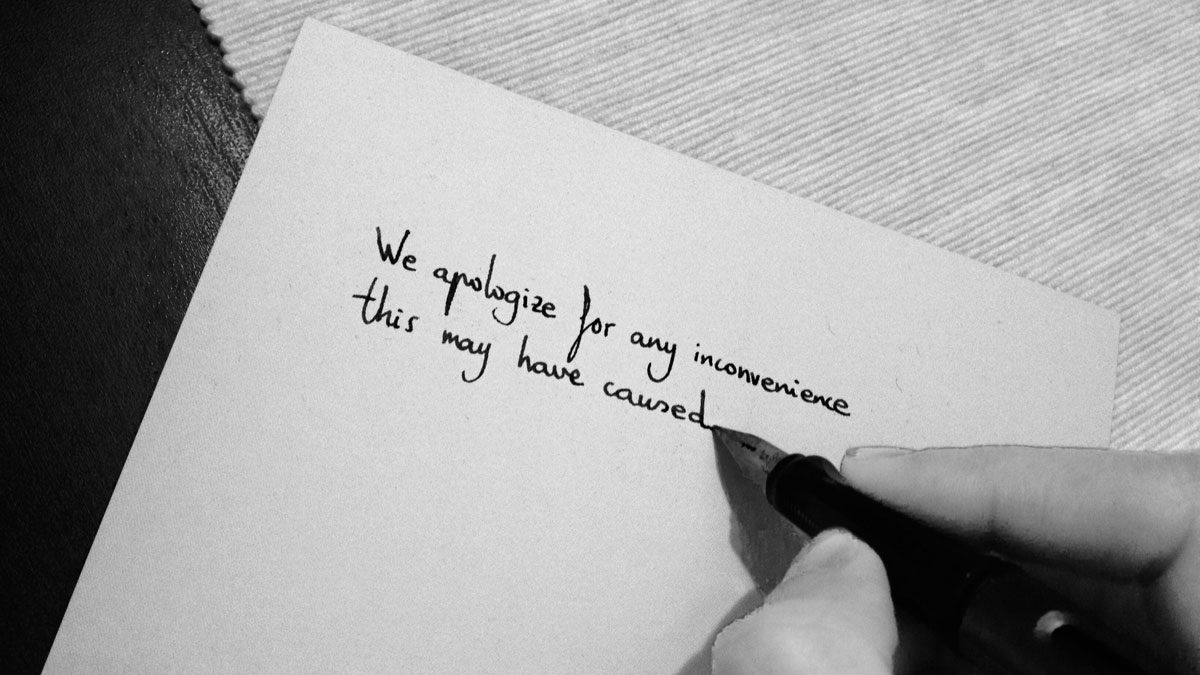 We apologize for any inconvenience
this may have caused.